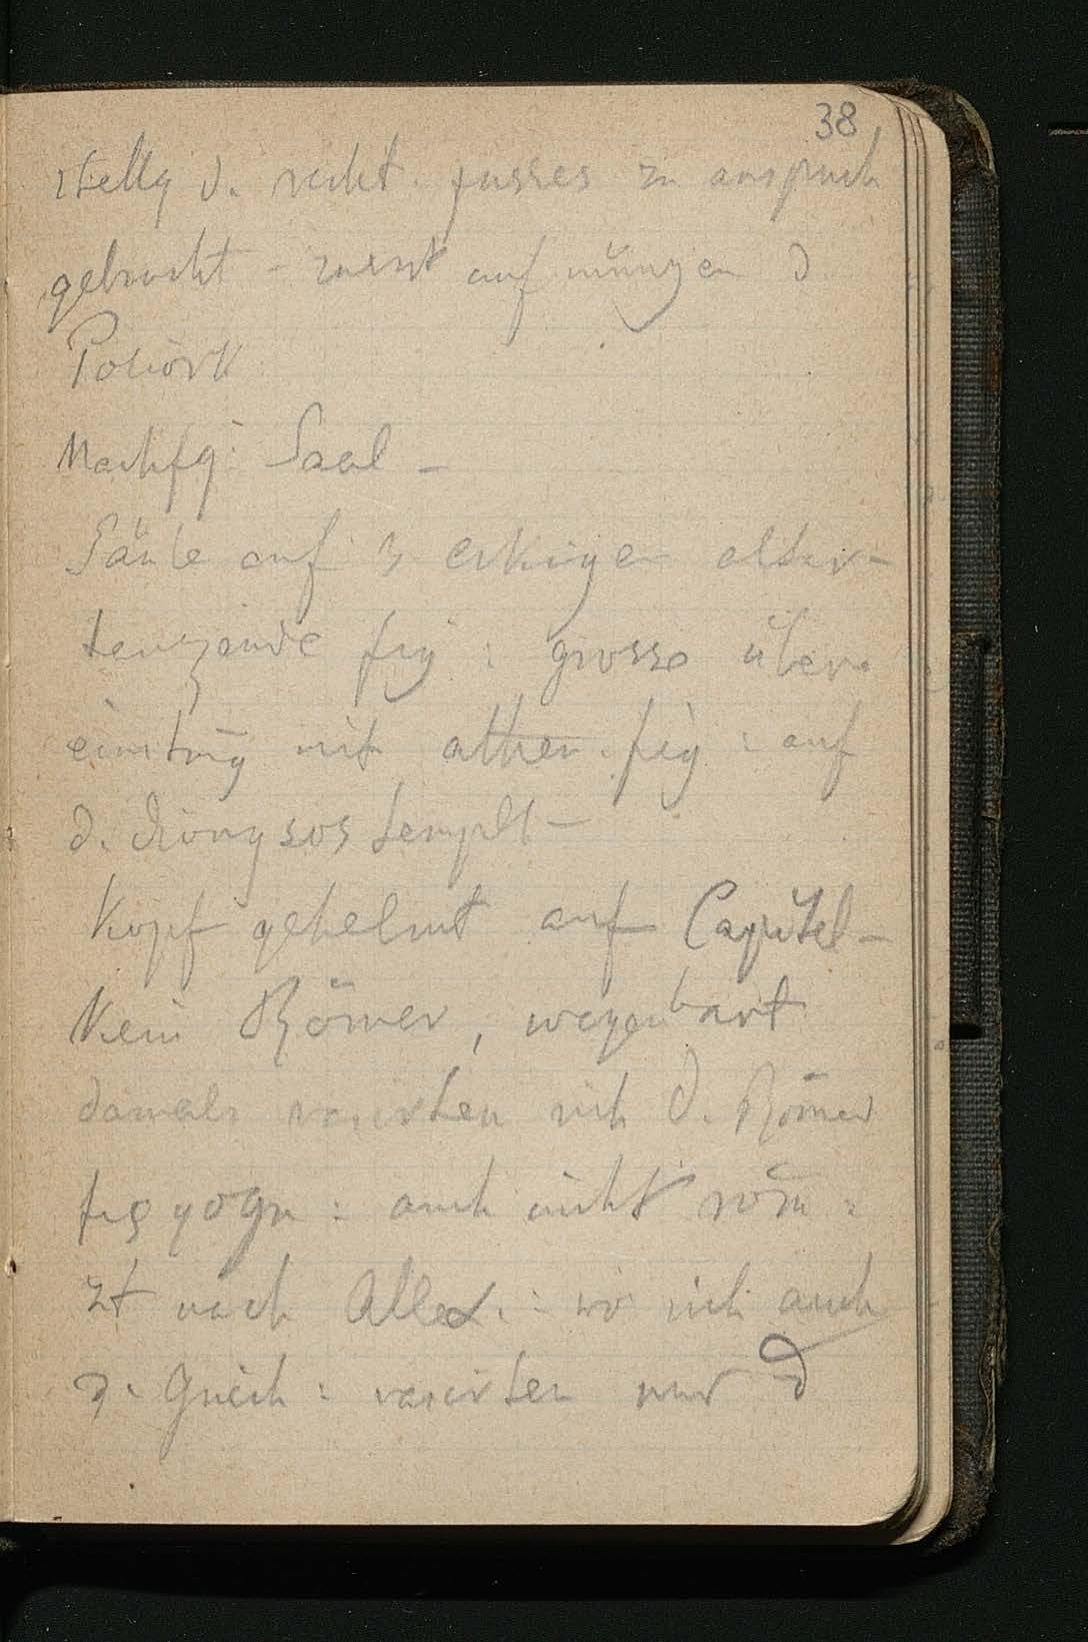 38
stellg d. recht. fusses zu anspruch
gebracht - zuerst auf münzen d
Poliork
Nachfg: Saal -
Säule auf 3 eckigen altar -
tanzende fig: grosse über
mit athen. fig: auf
d. dionysos templ -
Kopf gehelmt auf Capitel -
Kein Römer, wegen bart
damals rasirten sich d. Römer
: auch nicht röm:
zt nach Allex. : wo sich auch
d. Griech: rasirten nur d